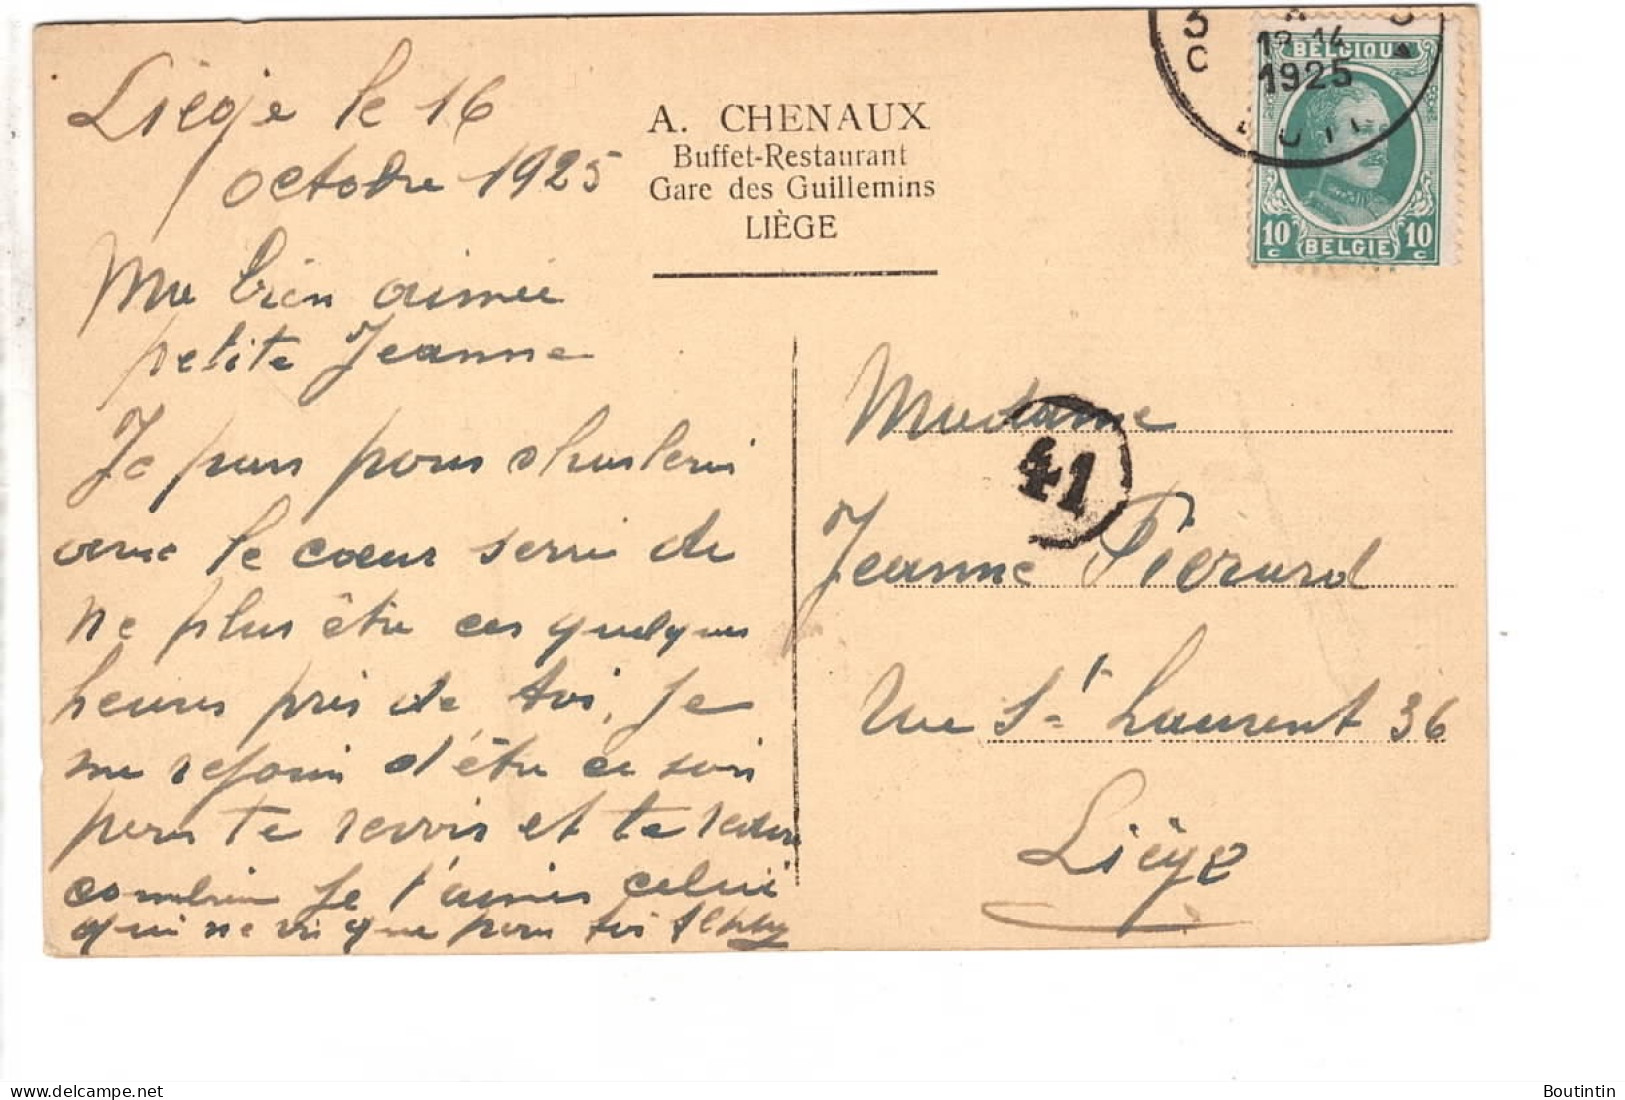 Liége le 16
octobre 1925
Ma bien aimée
petite Jeanne
Je pars pour
avec le coeur serré de
ne plus être ces quelques
heures près de toi, je
me rejouis d'être ce soir
pour te revoir et te redire
combien je t'aimes celui
qui ne vis que pour toi
A. CHENAUX
Buffet-Restaurant
Gare des Guillemins
LIÈGE
1925
BELGIQUE
10 c BELGIE 10 c
Madame
41
Jeanne Pierard
rue St Laurent 36
Liége
Boutintin